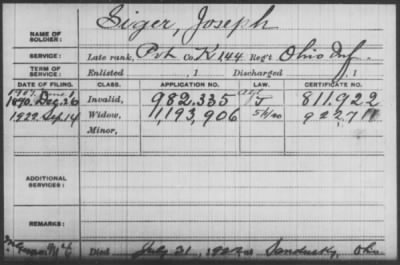 Siger, Joseph
NAME OF SOLDIER:
SERVICE: Late rank, Pvt Co. K, 144 Reg't Ohio Inf.
TERM OF SERVICE: Enlisted , 1 Discharged , 1
DATE OF FILING. CLASS. APPLICATION NO. LAW. CERTIFICATE NO.
1907.
1890. Dec. 26 Invalid, 982.335 J 811.922
1922. Sep. 14 Widow, 1,193,906 5/1/20
Minor,
ADDITIONAL SERVICES:
REMARKS:
Died July 31, 1922 at Sandusky, Ohio